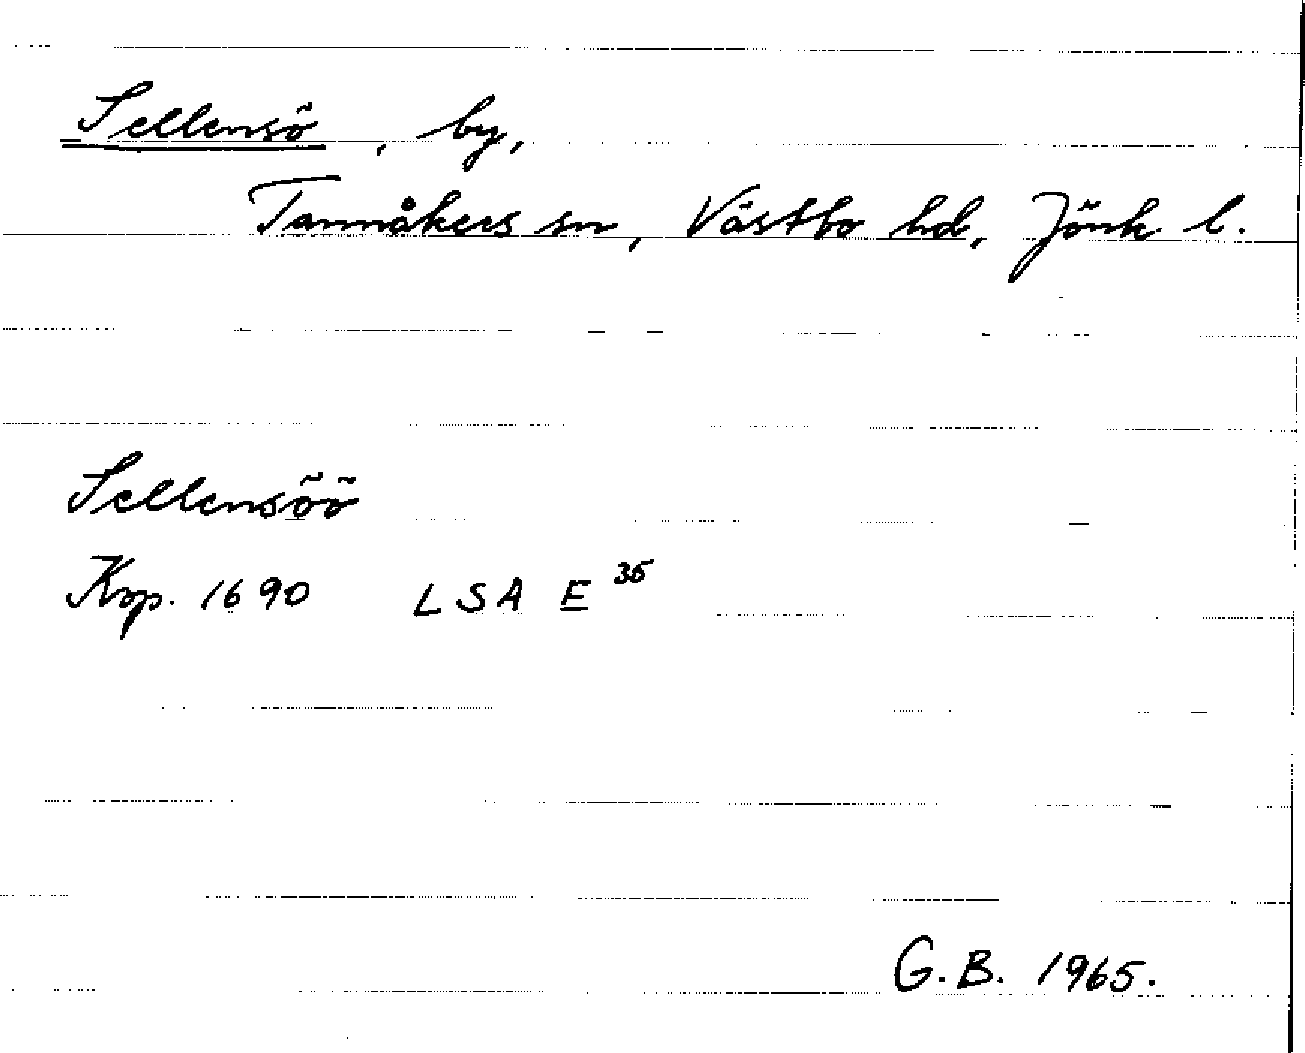 Sellensö, by,
Tannåkers sn, Västbo hd, Jönk l.
Sellensöö
Kop. 1690 LSA E 35
G.B. 1965.